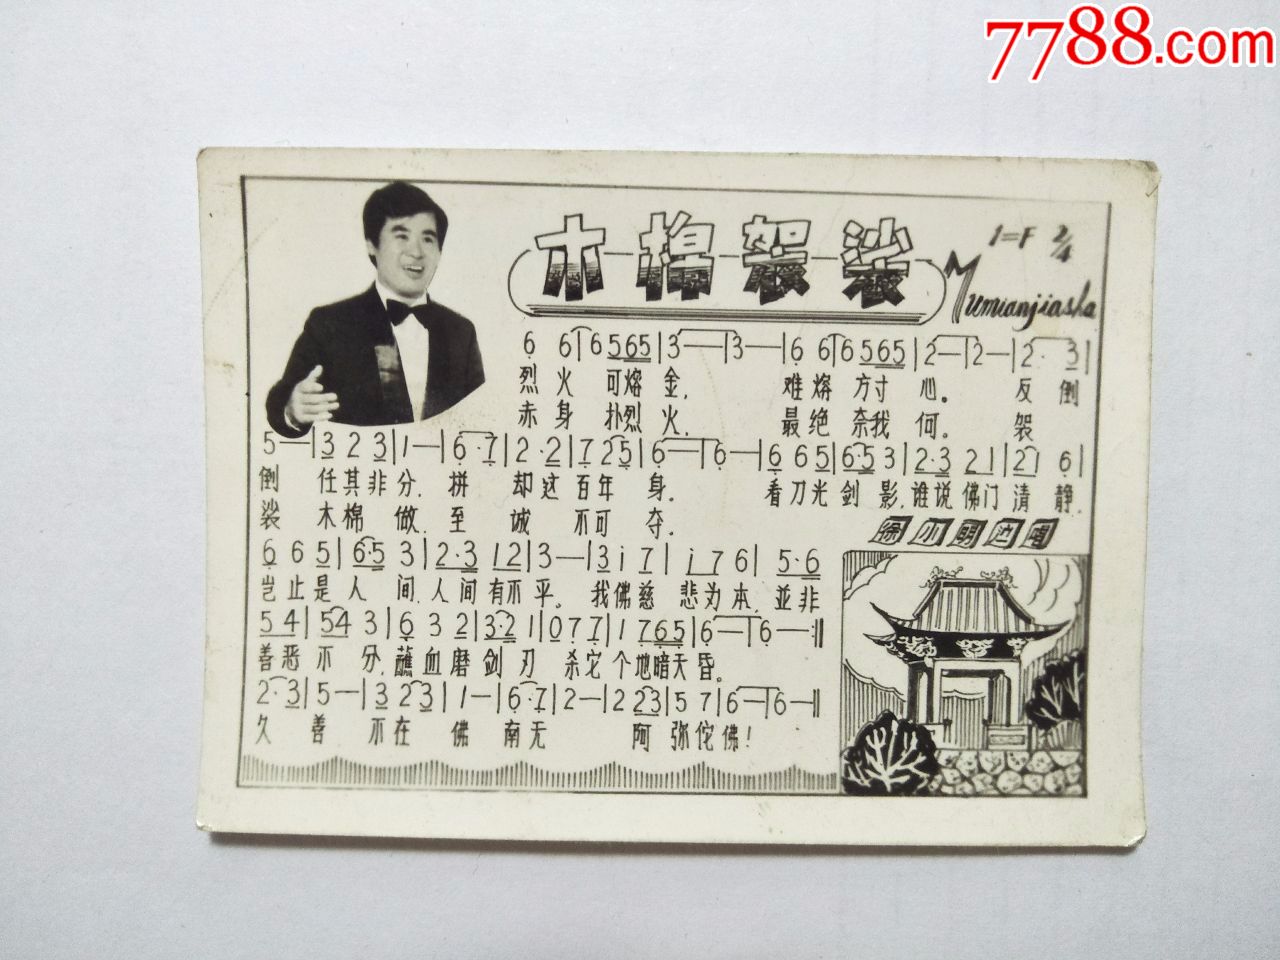 7788.com
木棉袈裟
1=F 2/4
Mumianjiasha
6 6|6 565|3—|3—|6 6|6 565|2—|2—|2·3|
烈火可熔金,难熔方寸心。反倒
赤身扑烈火,最绝奈我何。袈
5—|3 2 3|1—|6·7|2·2|7 2 5|6—|6—|6 6 5|6·5 3|2·3 2 1|2 6|
倒任其非分,拼却这百年身。看刀光剑影,谁说佛门清静,
裟木棉做,至诚不可夺。
徐小明述唱
6 6 5|6·5 3|2·3 1 2|3—|3 i 7|i 7 6|5·6
岂止是人间,人间有不平。我佛慈悲为本,並非
5 4|5 4 3|6 3 2|3·2 1|0 7 7|1 7 6 5|6—|6—:‖
善恶不分,蘸血磨剑刃杀它个地暗天昏。
2·3|5—|3 2 3|1—|6·7|2—|2 2 3|5 7|6—|6—‖
久善不在佛南无阿弥佗佛!